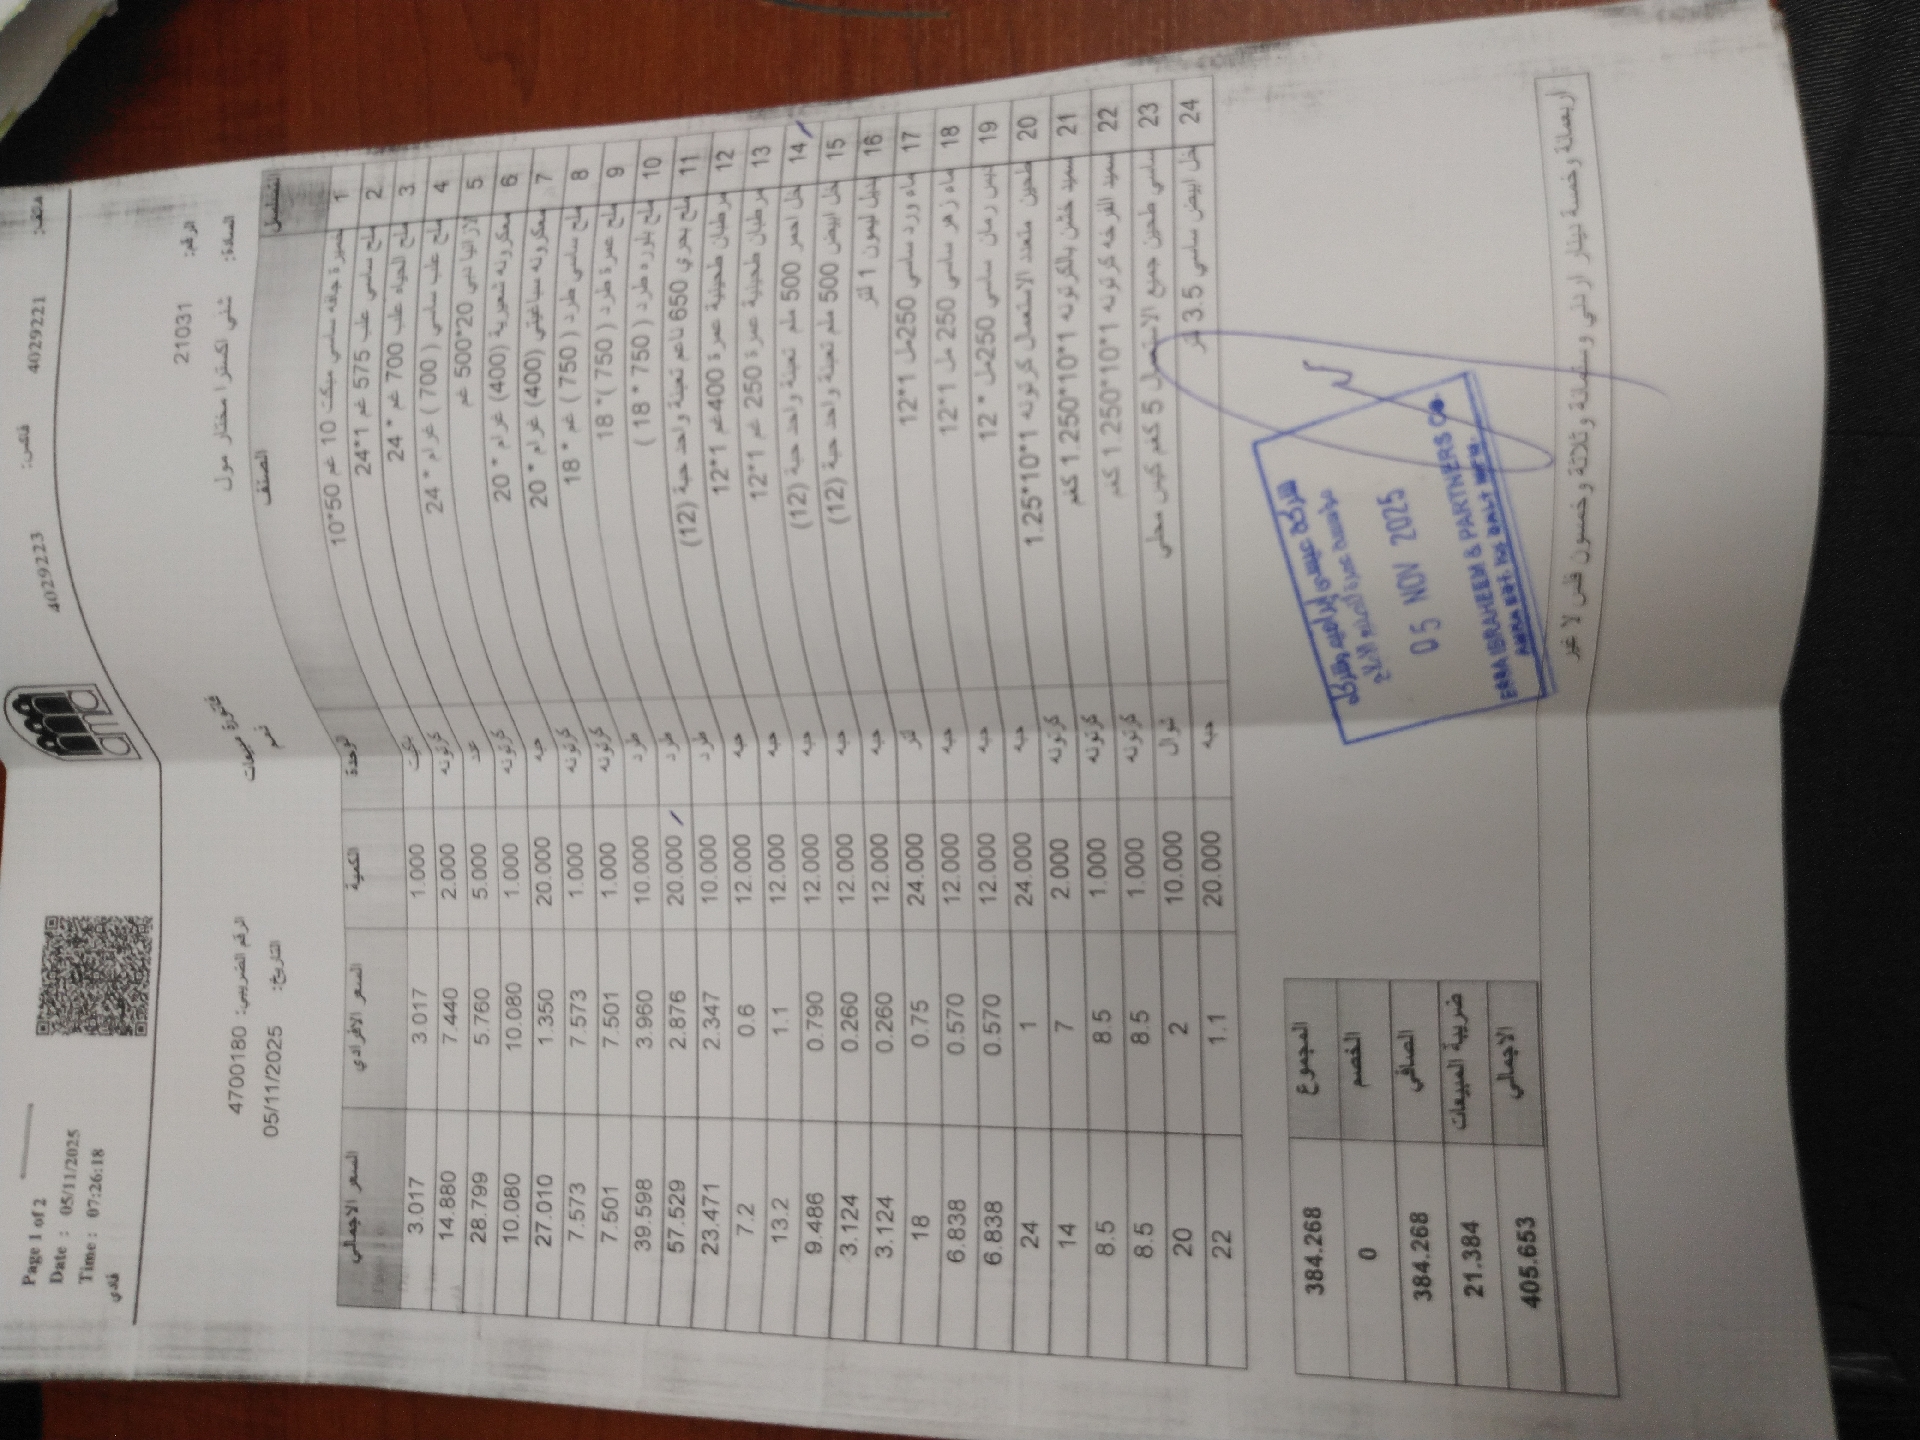 Page 1 of 2
Date : 05/11/2025
Time : 07:26:18
هاتف: 4029221
فاكس: 4029223
الرقم: 21031
السادة: شلبي اكسترا مختار مول
فاتورة مبيعات
الرقم الضريبي: 4700180
التاريخ: 05/11/2025
التسلسل الصنف الوحدة الكمية السعر الافرادي السعر الاجمالي
1 خميرة جافه ساسي ميكت 10 غم 50*10 بكت 1.000 3.017 3.017
2 ملح ساسي علب 575 غم 1*24 كرتونه 2.000 7.440 14.880
3 ملح الحياه علب 700 غم * 24 عدد 5.000 5.760 28.799
4 ملح علب ساسي ( 700 ) غرام * 24 كرتونه 1.000 10.080 10.080
5 20*500 غم حبه 20.000 1.350 27.010
6 معكرونه شعيرية (400) غرام * 20 كرتونه 1.000 7.573 7.573
7 معكرونه سباغيتي (400) غرام * 20 كرتونه 1.000 7.501 7.501
8 ملح ساسي طرد ( 750 ) غم * 18 طرد 10.000 3.960 39.598
9 ملح عمرة طرد ( 750 )* 18 طرد 20.000 2.876 57.529
10 ملح بلوره طرد ( 750 * 18 ) طرد 10.000 2.347 23.471
11 ملح بحري 650 ناعم تعبئة واحد حبة (12) حبه 12.000 0.6 7.2
12 مرطبان طحينية عمرة 400غم 1*12 حبه 12.000 1.1 13.2
13 مرطبان طحينية عمرة 250 غم 1*12 حبه 12.000 0.790 9.486
14 خل احمر 500 ملم تعبئة واحد حبة (12) حبه 12.000 0.260 3.124
15 خل ابيض 500 ملم تعبئة واحد حبة (12) حبه 12.000 0.260 3.124
16 بديل ليمون 1 لتر لتر 24.000 0.75 18
17 ماء ورد ساسي 250مل 1*12 حبه 12.000 0.570 6.838
18 ماء زهر ساسي 250 مل 1*12 حبه 12.000 0.570 6.838
19 دبس رمان ساسي 250مل * 12 حبه 24.000 1 24
20 طحين متعدد الاستعمال كرتونه 1*10*1.25 كرتونه 2.000 7 14
21 سميد خشن بالكرتونه 1*10*1.250 كغم كرتونه 1.000 8.5 8.5
22 سميد الفرخه كرتونه 1*10*1.250 كغم كرتونه 1.000 8.5 8.5
23 ساسي طحين جميع الاستعمال 5 كغم كيس محلي شوال 10.000 2 20
24 خل ابيض ساسي 3.5 لتر حبه 20.000 1.1 22
المجموع 384.268
الخصم 0
الصافي 384.268
ضريبة المبيعات 21.384
الاجمالي 405.653
05 NOV 2025
IBRAHEEM & PARTNERS CO.
اربعمائة وخمسة دينار اردني وستمائة وثلاثة وخمسون فلس لا غير